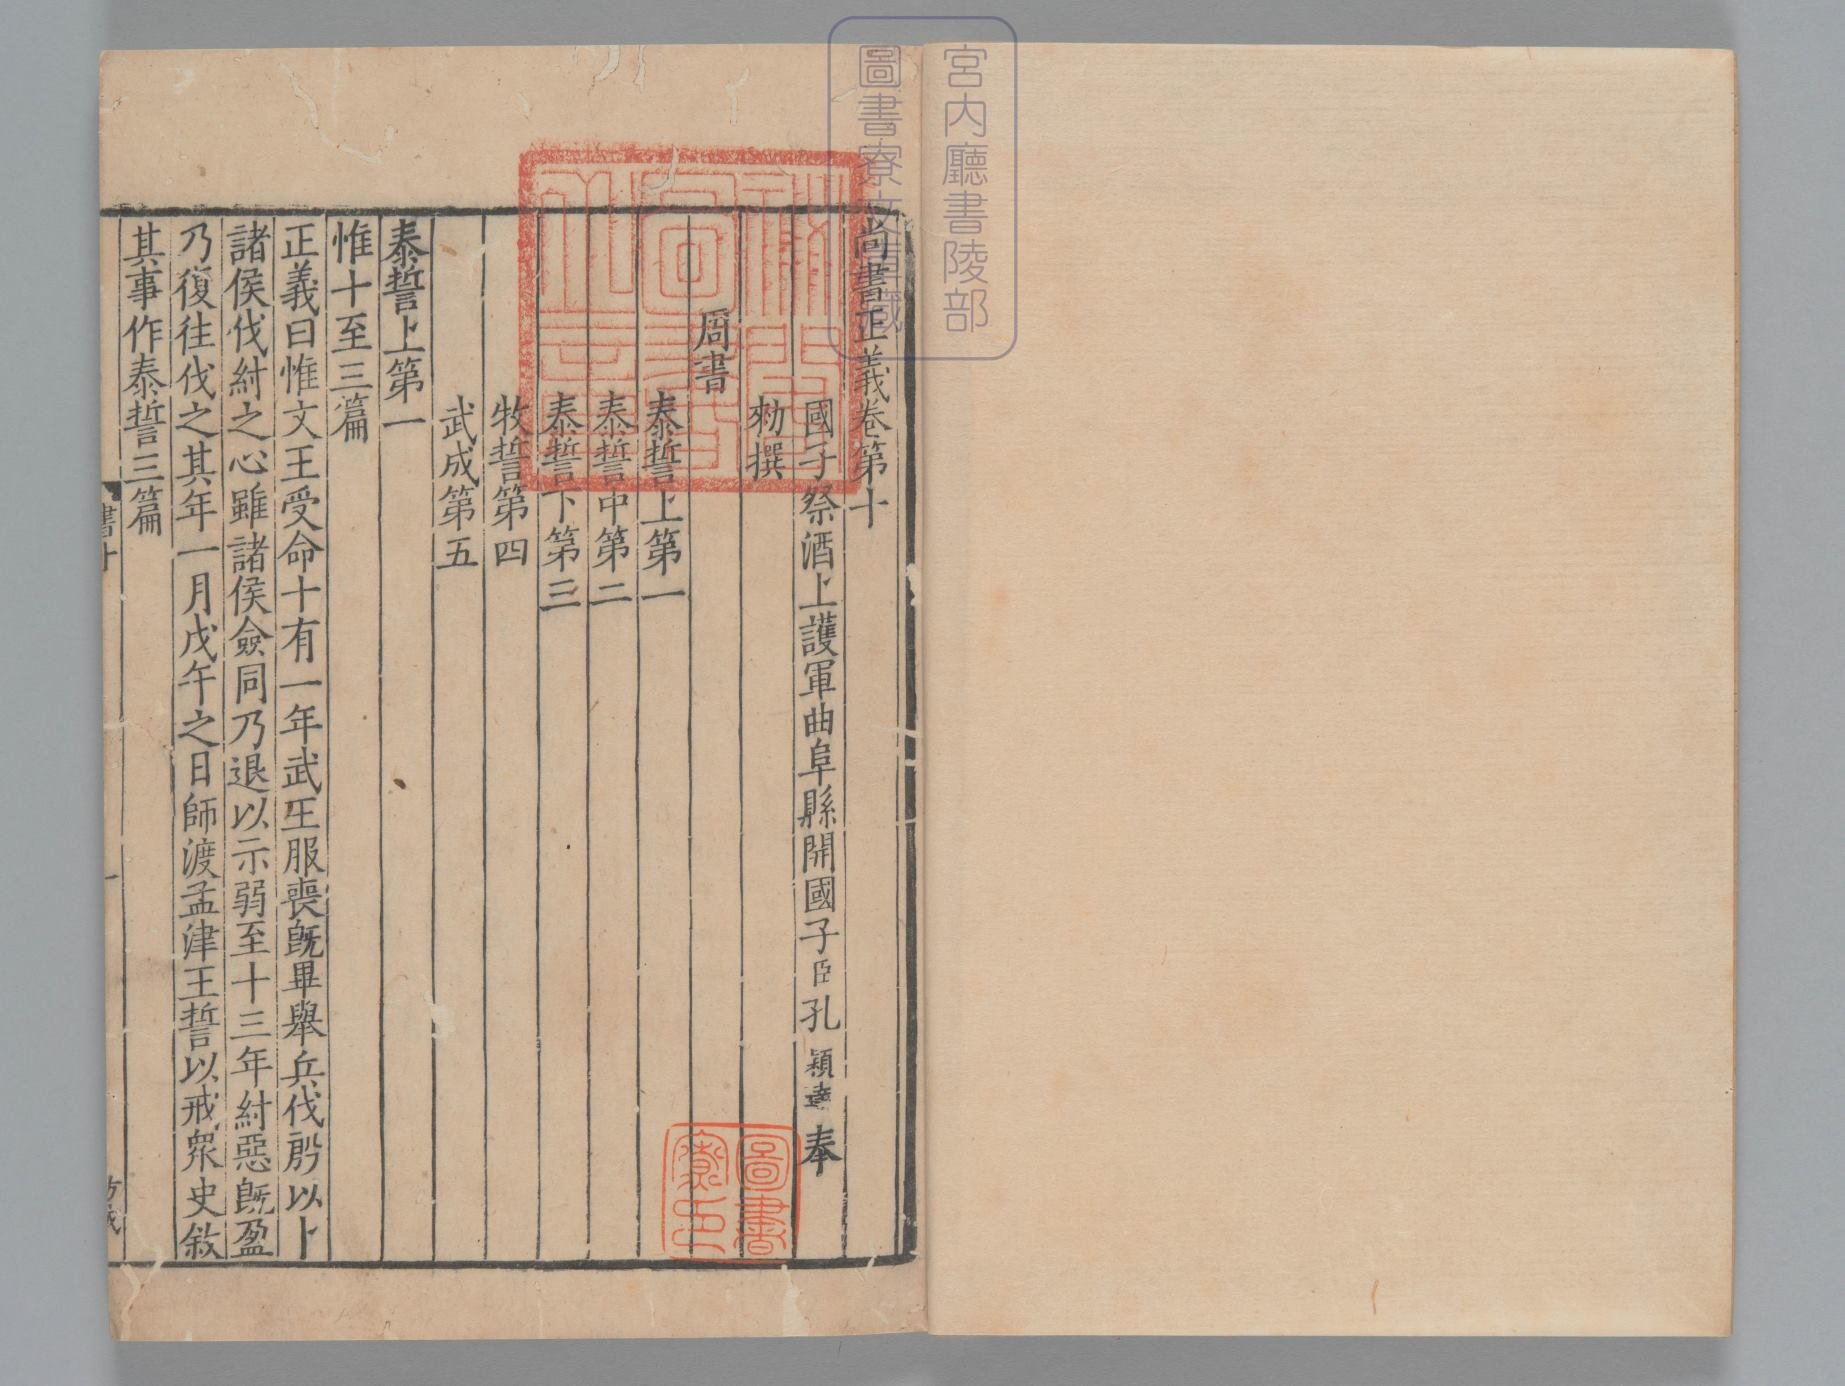 宮内廳書陵部
圖書寮文庫藏
尚書正義卷第十
國子祭酒上護軍曲阜縣開國子臣孔穎達奉
勑撰
周書
泰誓上第一
泰誓中第二
泰誓下第三
牧誓第四
武成第五
泰誓上第一
惟十至三篇
正義曰惟文王受命十有一年武王服喪旣畢舉兵伐殷以卜
諸侯伐紂之心雖諸侯僉同乃退以示弱至十三年紂惡旣盈
乃復往伐之其年一月戊午之日師渡孟津王誓以戒衆史敘
其事作泰誓三篇
書十
一
圖書
寮印